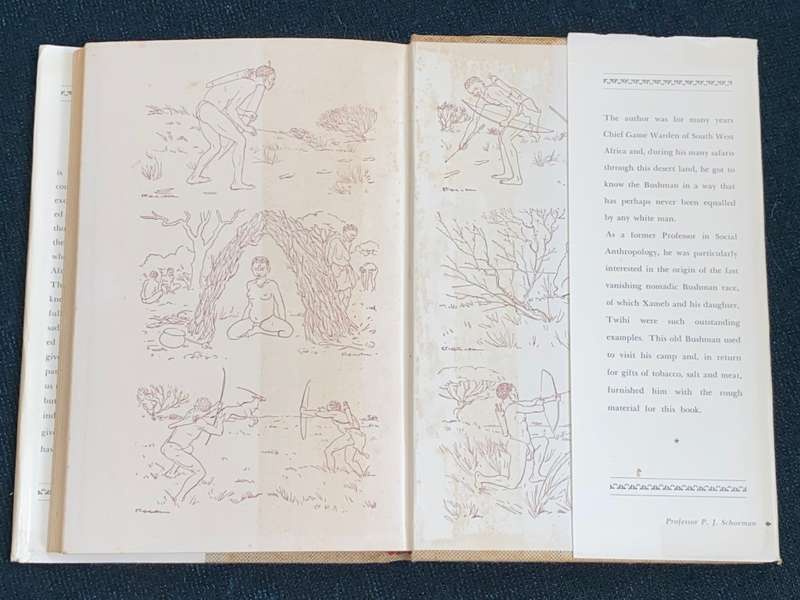 is
ed
the
sad
ed
us
but
The author was for many years
Chief Game Warden of South West
Africa and, during his many safaris
through this desert land, he got to
know the Bushman in a way that
has perhaps never been equalled
by any white man.
As a former Professor in Social
Anthropology, he was particularly
interested in the origin of the fast
vanishing nomadic Bushman race,
of which Xameb and his daughter,
Twihi were such outstanding
examples. This old Bushman used
to visit his camp and, in return
for gifts of tobacco, salt and meat,
furnished him with the rough
material for this book.
Professor P. J. Schoeman